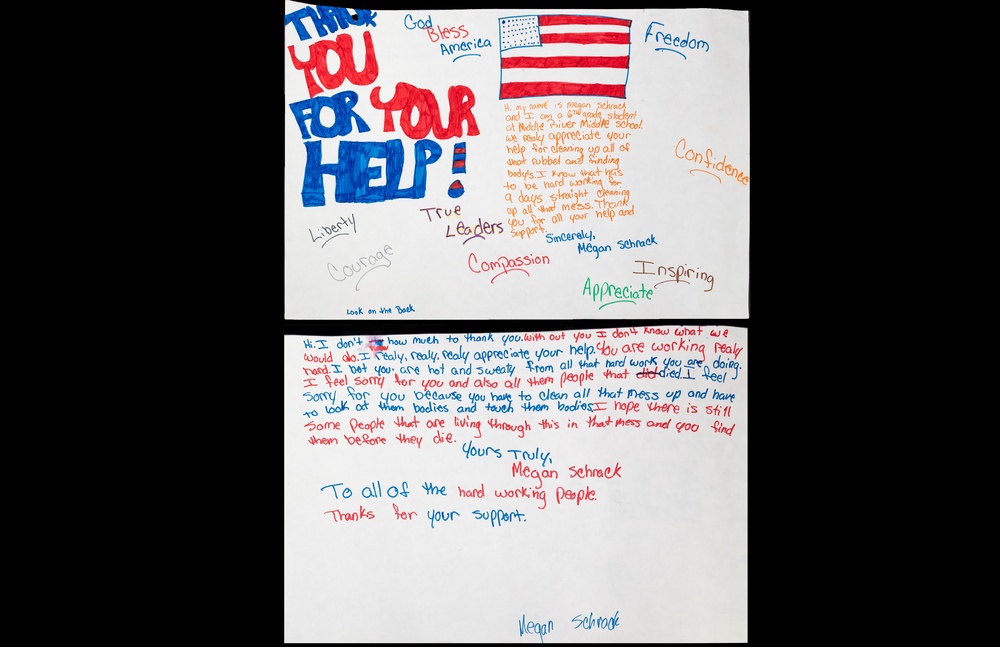 THANK
YOU
FOR YOUR
HELP!
God
Bless
America
Freedom
Hi, my name is Megan Schrack
and I am a 6TH grade student
at Middle River Middle School.
we realy appreciate your
help for cleaning up all of
that rubbel and finding
body's. I know that has
to be hard working for
9 days straight cleaning
up all that mess. Thank
you for all your help and
support.
Sincerely,
Megan Schrack
Confidence
Liberty
True
Leaders
Courage
Compassion
Inspiring
Appreciate
Look on the Back
Hi. I don't how much to thank you. With out you I don't know what we
would do. I realy, realy, realy appreciate your help. You are working realy
hard. I bet you are hot and sweaty from all that hard work you are doing.
I feel sorry for you and also all them people that did died. I feel
sorry for you because you have to clean all that mess up and have
to look at them bodies and touch them bodies. I hope there is still
some people that are living through this in that mess and you find
them before they die.
Yours Truly,
Megan Schrack
To all of the hard working people.
Thanks for your support.
Megan Schrack